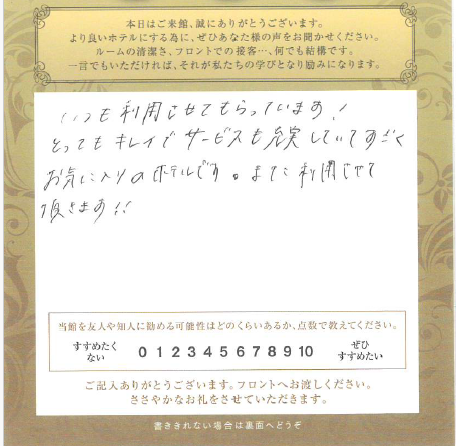 本日はご来館、誠にありがとうございます。
より良いホテルにする為に、ぜひあなた様の声をお聞かせください。
ルームの清潔さ、フロントでの接客…、何でも結構です。
一言でもいただければ、それが私たちの学びとなり励みになります。
いつも利用させてもらっています!
とってもキレイでサービスも充実していてすごく
お気に入りのホテルです。また利用させて
頂きます!!
当館を友人や知人に勧める可能性はどのくらいあるか、点数で教えてください。
すすめたく
ない
0 1 2 3 4 5 6 7 8 9 10
ぜひ
すすめたい
ご記入ありがとうございます。フロントへお渡しください。
ささやかなお礼をさせていただきます。
書ききれない場合は裏面へどうぞ